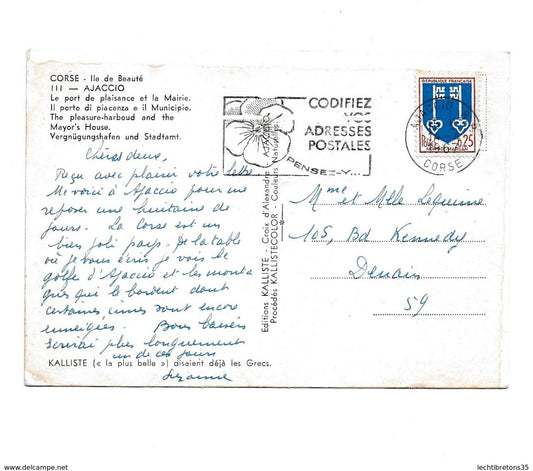 CORSE - Ile de Beauté
III — AJACCIO
Le port de plaisance et la Mairie.
Il porto di piacenza e il Municipio.
The pleasure-harboud and the
Mayor's House.
Vergnügungshafen und Stadtamt.
Chères deux,
Reçu avec plaisir votre lettre
Me voici à Ajaccio pour me
reposer une huitaine de
jours. La Corse est un
bien joli pays. De la table
où je vous écris je vois le
golfe d'Ajaccio et les monta
gnes qui le bordent dont
certaines cimes sont encore
enneigées. Bons baisers
Ecrirai plus longuement
un de ces jours
Suzanne
KALLISTE (« la plus belle ») disaient déjà les Grecs.
Editions KALLISTE - Cours d'Alexandre - AJACCIO
Procédés KALLISTECOLOR - Couleurs Naturelles.
CODIFIEZ
VOS
ADRESSES
POSTALES
PENSEZ-Y...
AJACCIO
CORSE
REPUBLIQUE FRANÇAISE
0,25
MONT-DE-MARSAN
Mme et Melle Lequime
105, Bd Kennedy
Denain
59
www.delcampe.net
lechtibretons35